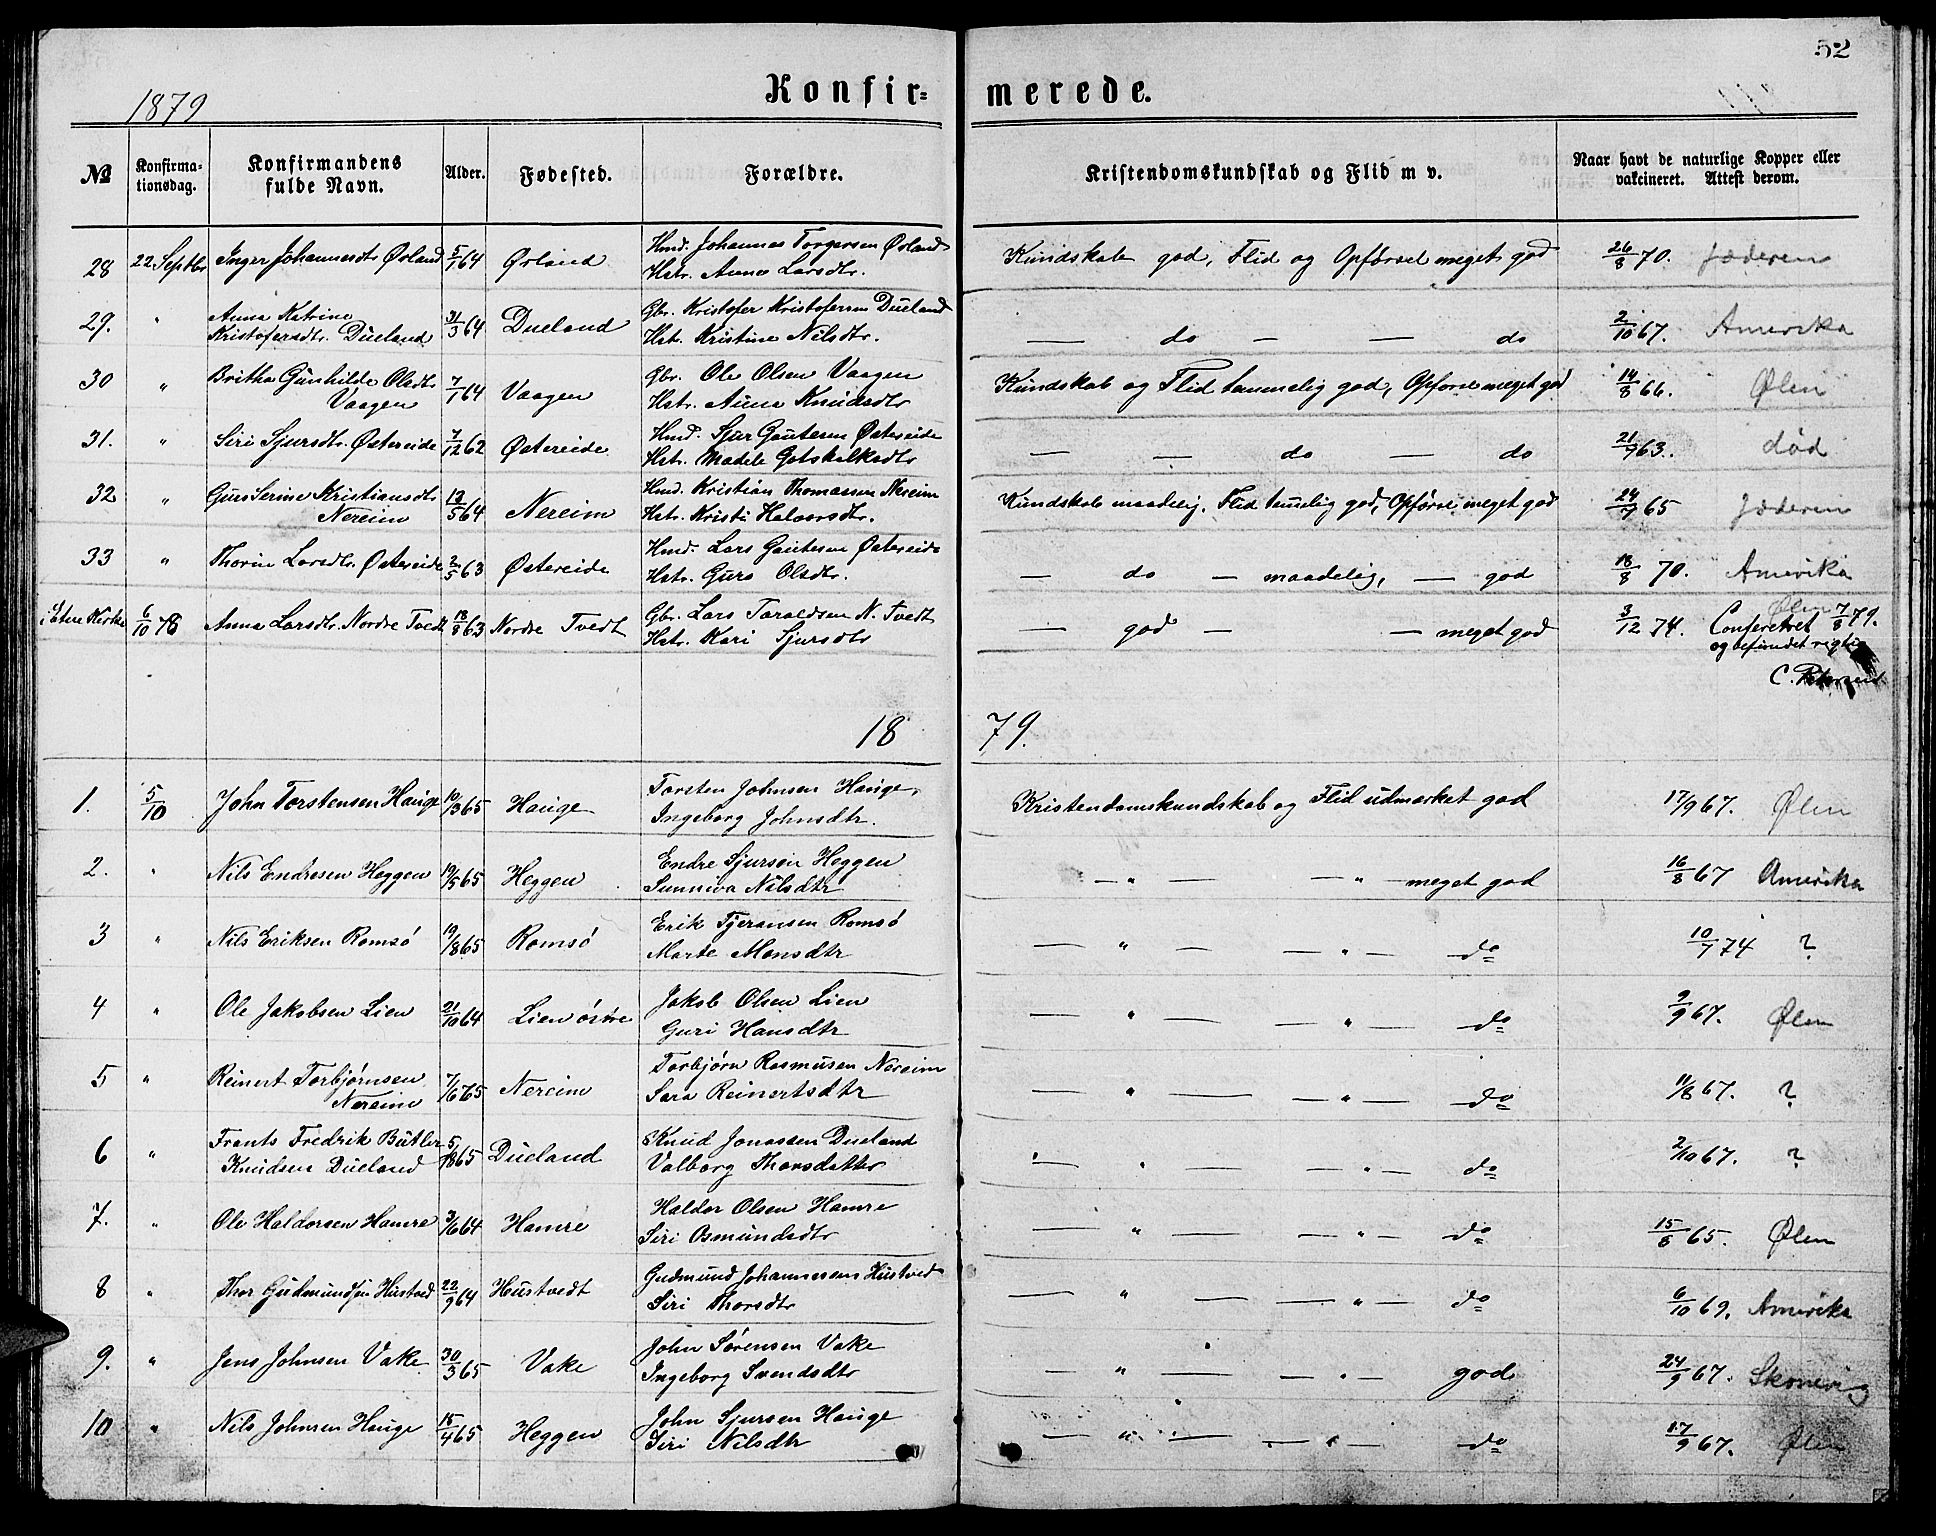 52
1879
Konfirmerede.
№ Konfirmationsdag. Konfirmandens fulde Navn. Alder. Fødested. Forældre. Kristendomskundskab og Flid m v. Naar havt de naturlige Kopper eller vakcineret. Attest derom.
28 22 Septbr Inger Johannesdtr Øvland 5/1 64 Ørland Hmd. Johannes Torgersen Øvland Kundskab god, Flid og Opførsel meget god 26/8 70. Jæderen
Hstr. Anna Larsdtr.
29. " Anna Katrine 31/3 64 Dueland Gbr. Kristofer Kristofersen Dueland — do — — do 2/10 67. Amerika
Kristofersdtr. Dueland Hstr. Kristine Nilsdtr.
30 " Britha Gunhilde Olsdtr 7/1 64 Vaagen Gbr. Ole Olsen Vaagen Kundskab og Flid temmelig god, Opførsel meget god 14/8 66. Ølen
Vaagen Hstr. Anna Knudsdtr
31. " Siri Sjursdtr. Østereide 7/12 62 Østereide Hmd. Sjur Gautesen Østereide — — do — do 21/9 63. død
Hstr. Madele Gotskalksdtr
32 " Guri Serine Kristiansdtr 13/5 64 Nereim Hmd. Kristian Thomassen Nereim Kundskab maadelig, Flid temelig god, Opførsel meget god 24/9 65 Jæderen
Nereim Hstr. Kristi Halvorsdtr.
33 " Thorin Larsdtr. Østereide 2/5 63 Østereide Hmd. Lars Gautesen Østereide — do — maadelig, — god 18/8 70. Amerika
Hstr. Guro Olsdtr.
i Etne Kirke 6/10 78 Anna Larsdtr. Nordre Tvedt 13/8 63 Nordre Tvedt Gbr. Lars Taraldsen N. Tvedt — god — — meget god 3/12 74. Ølen
Hstr. Kari Sjursdtr
Conferetret 7/8 79.
og befundet rigtig
C. Petersen
1879.
1. 5/10 John Torstensen Hauge 10/3 65 Hauge Torsten Johnsen Hauge, Kristendomskundskab og Flid udmærket god 17/9 67. Ølen
Ingeborg Johnsdtr.
2. " Nils Endresen Heggen 19/5 65 Heggen Endre Sjursen Heggen — " — — " — meget god 16/8 67 Amerika
Sunniva Nilsdtr
3 " Nils Eriksen Romsø 19/8 65 Romsø Erik Tjeransen Romsø — " — — " — do 10/7 74 ?
Marte Monsdtr
4 " Ole Jakobsen Lien 21/10 64 Lien østre Jakob Olsen Lien — " — — " — do 2/9 67. Ølen
Guri Hansdtr
5 " Reinert Torbjørnsen Nereim Torbjørn Rasmusen Nereim — " — — " — do 11/8 67. ?
Nereim Sara Reinertsdtr
6 " Frants Fredrik Butler Dueland Knud Jonassen Dueland — " — — " — do 2/10 67. ?
Knudsen Dueland Valborg Thorsdatter
7. " Ole Haldorsen Hamre 3/6 64 Hamre Haldor Olsen Hamre — " — — " — do 15/8 65. Ølen
Siri Osmundsdtr
8 " Thor Gudmundsen Hustved 22/9 64 Hustvedt Gudmund Johannesen Hustved — " — — " — do 6/10 69. Amerika
Siri Thorsdtr
9. " Jens Johnsen Vake 30/3 65 Vake John Sørensen Vake — " — — " — god 24/9 67. Skonevig
Ingeborg Svendsdtr
10 " Nils Johnsen Hauge 15/4 65 Heggen John Sjursen Hauge — " — — " — do 17/9 67. Ølen
Siri Nilsdtr